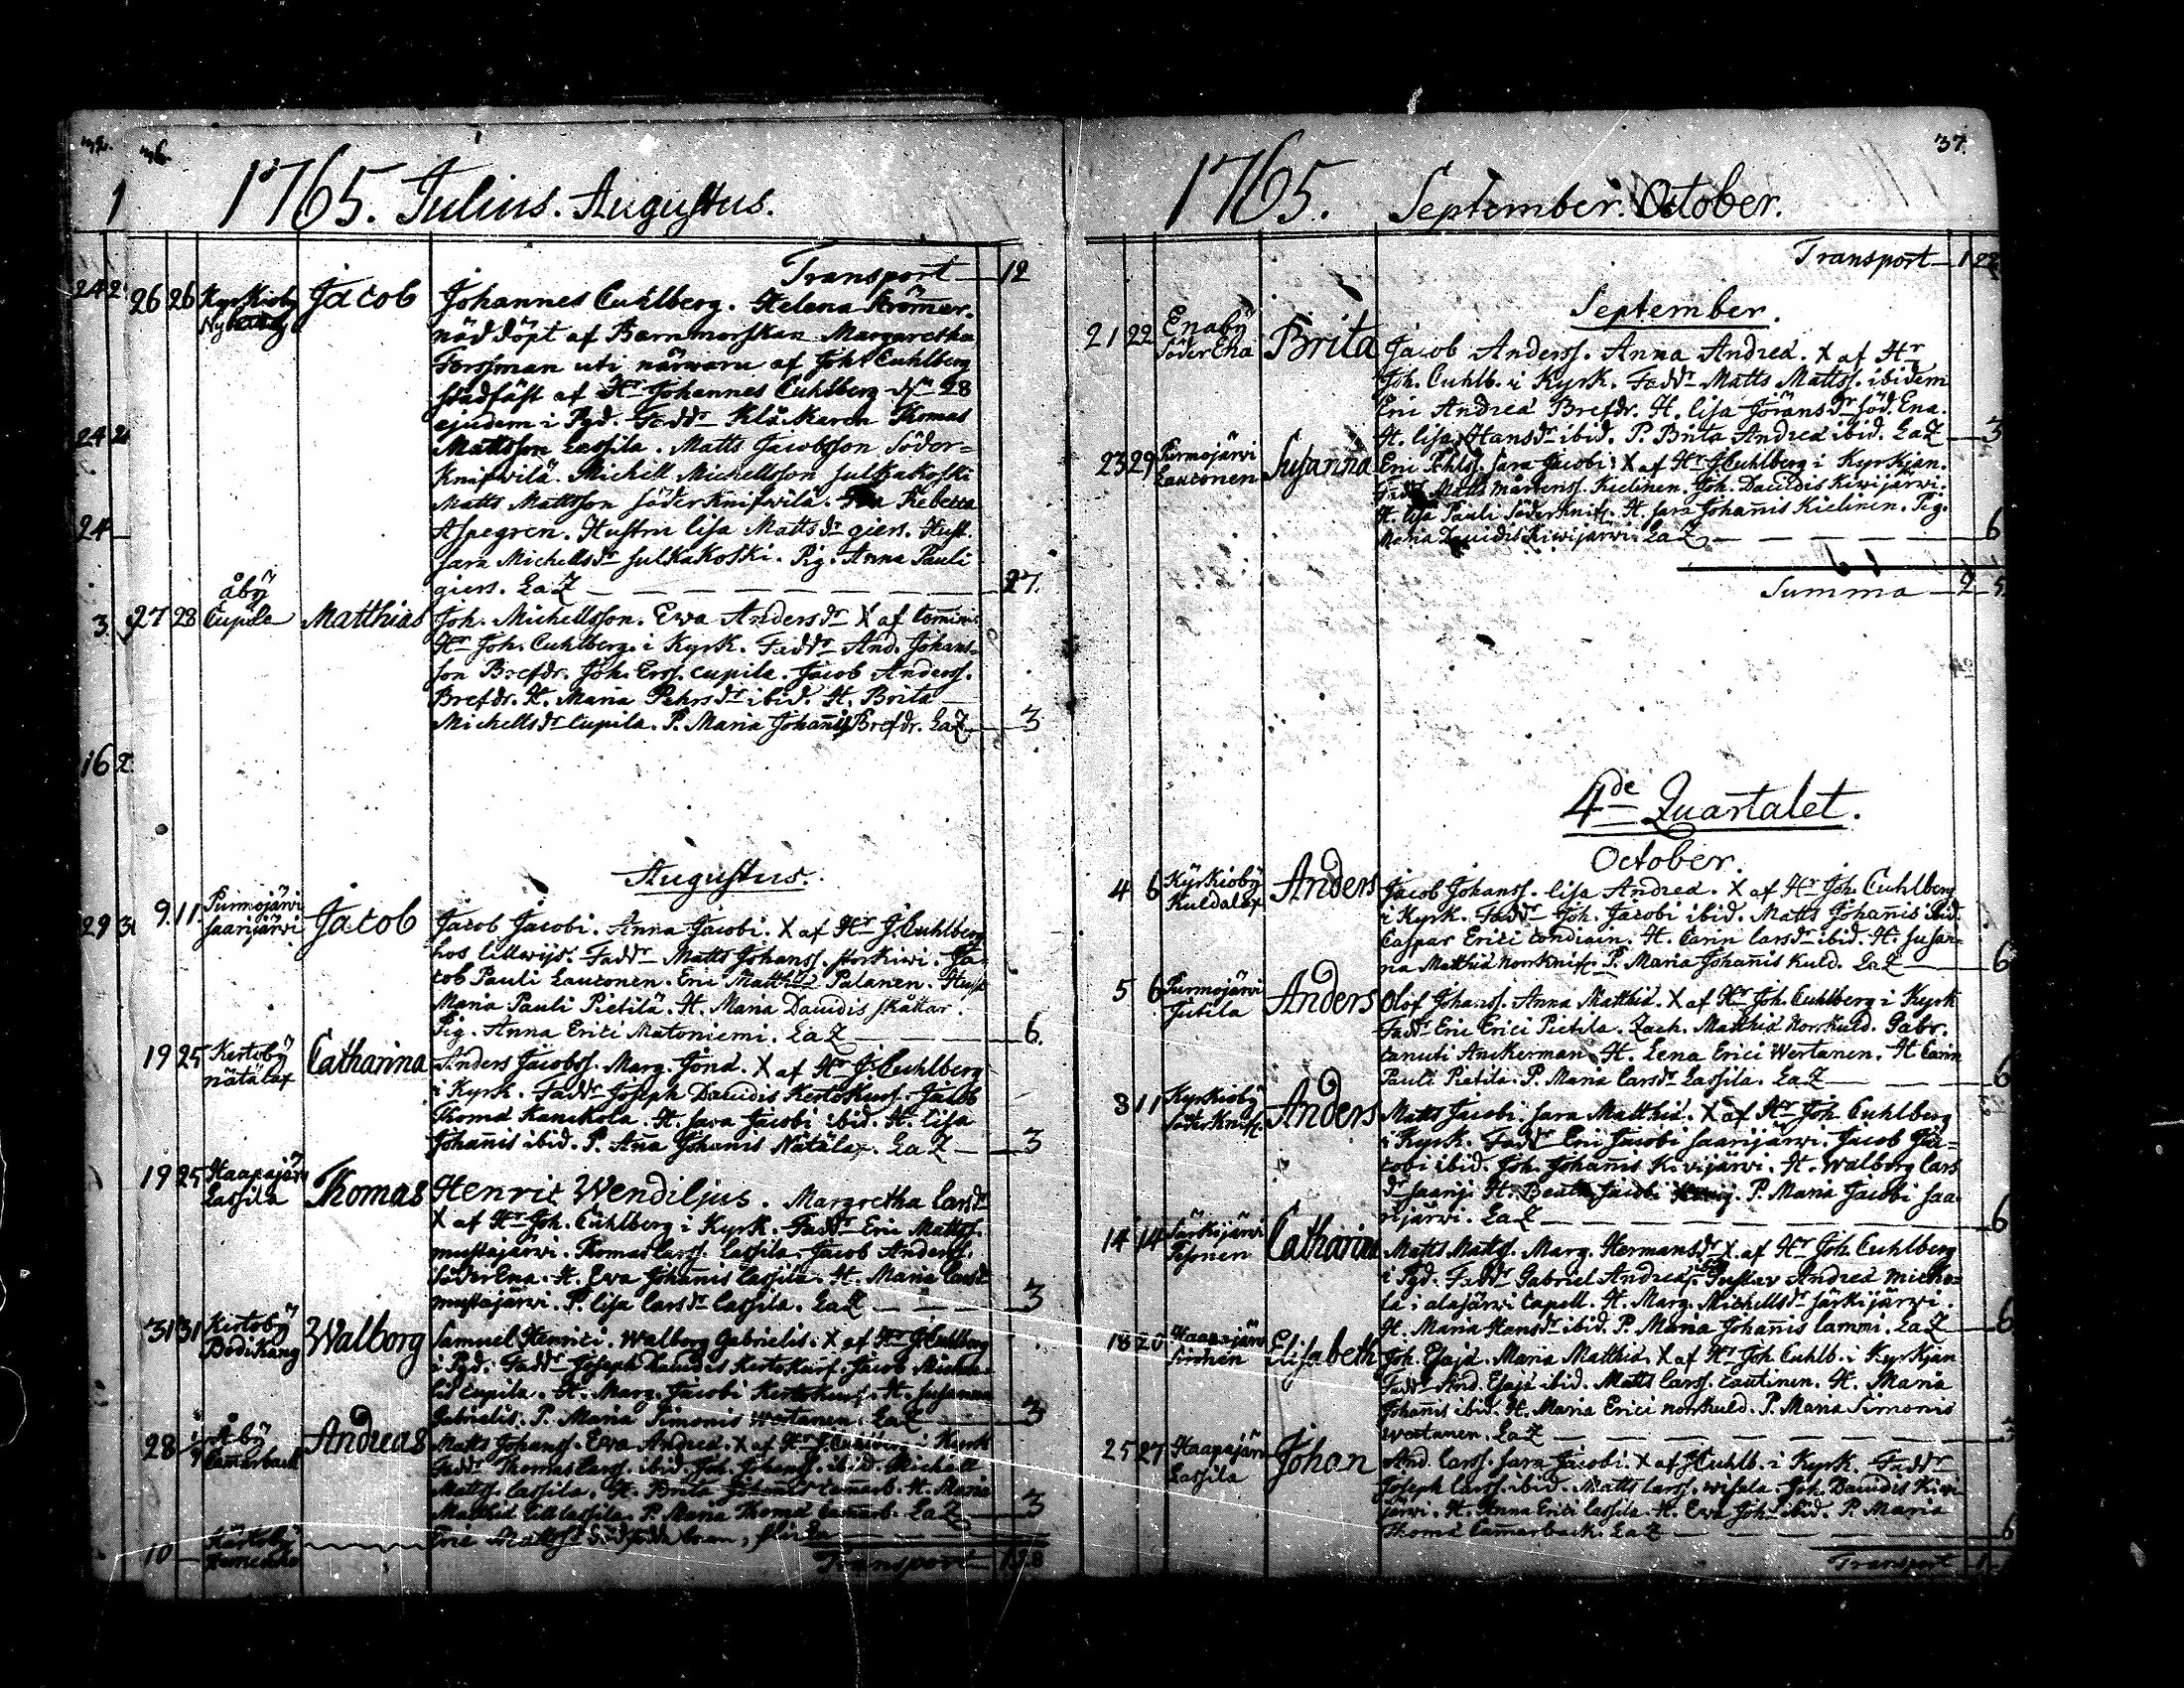 36.
1765. Julius. Augustus.
Transport 12
26 26 Kyrkioby Jacob Johannes Cuhlberg. Helena Krömer.
nöd döpt af Barnmorskan Margaretha
Forssman uti närwaru af Joh. Cuhlberg
stadfäst af Hr Johannes Cuhlberg d. 28
ejusdem i Pgd. Faddr Klåckaren Thomas
Mattsson Lassila. Matts Jacobsson Söder=
Knifwilä. Michell Michellsson Sulkakoski
Matts Mattsson Söderknifwilä. Rebecca
Aspegren. Hustru Lisa Mattsdr giers. Hust.
Sara Michellsdr Sulkakoski. Pig. Anna Pauli
giers. LaZ 27.
åbÿ
27 28 Cupila Matthias Joh. Michellsson. Ewa Andersdr X af Comin:
Hr Joh. Cuhlberg. i Kyrk. Faddr And. Johans=
son Brefdr. Joh. Erss. Cupila. Jacob Anderss.
Brefdr. H. Maria Pehrsdr ibid. H. Brita
Michellsdr Cupila. P. Maria Johannis Brefdr. LaZ 3
Augustus.
9. 11. Purmojärwi Saarijärwi Jacob Jacob Jacobi. Anna Jacobi. X af Hr J. Cuhlberg
hos Lillwijs. Faddr Matts Johanss. Storkiwi. Ja=
cob Pauli Lautonen. Eric Matthiæ Palanen. Hust
Maria Pauli Pietilä. H. Maria Dauidis Skåttar.
Pig. Anna Erici Matoniemi. LaZ 6.
19 25 Kertobÿ nätälax Catharina Anders Jacobss. Marg. Jonæ. X af Hr J. Cuhlberg
i Kyrk. Faddr Joseph Dauidis Kertokurf. Jacob
Thomæ Kanckola. H. Sara Jacobi ibid. H. Lisa
Johanis ibid. P. Anna Johanis Nätälax. LaZ 3
19 25 Haapajärwi Lassila Thomas Henric Wendiljus. Margretha Larsdr
X af Hr Joh. Cuhlberg i Kyrk. Faddr Eric Mattss.
mustajärwi. Thomas Larss. Lassila. Jacob Anderss.
SöderEna. H. Ewa Johanis Lassila. H. Maria Larsdr
mustajärwi. P. Lisa Larsdr Lassila. LaZ 3
31 31 Kertobÿ Bodikang Walborg Samuel Henrici. Walborg Gabrielis. X af Hr J. Cuhlberg
i Pgd. Faddr Joseph Dauidis Kertokurf. Jacob
Cupila. H. Marg. Jacobi Kertokurf. H. Susanna
Gabrielis. P. Maria Simonis Wertanen. LaZ 3
28 Åbÿ Camarback Andreas Matts Johanss. Ewa Andreæ. X af Hr J. Cuhlberg i Kyrk
Faddr Thomas Larss. ibid. Joh. Johanss. ibid. Michell
Mattss. Lassila. H. Brita Johannis Camarb. H. Maria
Matthiæ Lill Lassila. P. Maria Thomæ Camarb. LaZ 3
10 Kärtobÿ Eric Mattss. dödfödda barn,
Transport
37.
1765. September. October.
Transport 1 22
September.
21 22 Enabÿ Söder Ena Brita Jacob Anderss. Anna Andreæ. X af Hr
Joh. Cuhlb. i Kyrk. Faddr Matts Mattss. ibidem
Eric Andreæ Brefdr. H. Lisa Jöransdr Söd. Ena.
H. Lisa Hansdr ibid. P. Brita Andreæ ibid. LaZ 3
23 29 Purmojärvi Lautonen Susanna Eric Pehlss. Sara Jacobi X af Hr J. Cuhlberg i Kyrkian.
Faddr Matts Mårtenss. Kielinen. Joh. Dauidis Kiwijärwi.
H. Lisa Pauli Söderknif. H. Sara Johannis Kielinen. Pig.
Maria Dauidis Kiwijärwi. LaZ 6
Summa 2 5
4de Quartalet.
October.
4 6 Kÿrkiobÿ Kuldalax Anders Jacob Johanss. Lisa Andreæ. X af Hr Joh. Cuhlberg
i Kyrk. Faddr Joh. Jacobi ibid. Matts Johannis ibid.
Caspar Erici Condiain. H. Carin Larsdr ibid. H. Susan=
na Matthiæ Norrknif. P. Maria Johannis Kuld. LaZ 6
5 6 Purmojärwi Jutila Anders Olof Johanss. Anna Matthiæ. X af Hr Joh. Cuhlberg i Kyrk
Faddr Eric Erici Pietila. Zach. Matthiæ Norrkuld. Gabr.
Canuti Anckerman. H. Lena Erici Wertanen. H. Carin
Pauli Pietila. P. Maria Larsdr Lassila. LaZ 6
8 11 Kyrkiobÿ Söderknif Anders Matts Jacobi. Sara Matthiæ. X af Hr Joh. Cuhlberg
i Kyrk. Faddr Eric Jacobi Saarijärwi. Jacob Ja=
cobi ibid. Joh. Johannis Kiwijärwi. H. Walborg Lars
dr Saarij. H. Beata Jacobi P. Maria Jacobi Saa=
rijärwi. LaZ 6
14 14 Särkijärwi Catharina Matts Mattss. Marg. Hermansdr X af Hr Joh. Cuhlberg
i Pgd. Faddr Gabriel Andreæ. Gustav Andreæ Micko=
la i alajärwi Capell. H. Marg. Michellsdr Särkijärwi.
H. Maria Hansdr ibid. P. Maria Johannis Lammi. LaZ 6
18 20 Haapajärwi Elisabeth Joh. Esajæ. Maria Matthiæ. X af Hr Joh. Cuhlb. i Kyrkian
Faddr And. Esajæ ibid. Matts Larss. Lautinen. H. Maria
Johannis ibid. H. Maria Erici norrkuld. P. Maria Simonis
Wertanen. LaZ 3
25 27 Haapajärwi Lassila Johan And. Larss. Sara Jacobi. X af J Cuhlb. i Kyrk. Faddr
Joseph Larss. ibid. Matts Larss. Wisala. Joh. Dauidis Kiwi
järwi. H. Anna Erici Lassila. H. Ewa Joh. ibid. P. Maria
Thomæ Camarback. LaZ 6
Transport